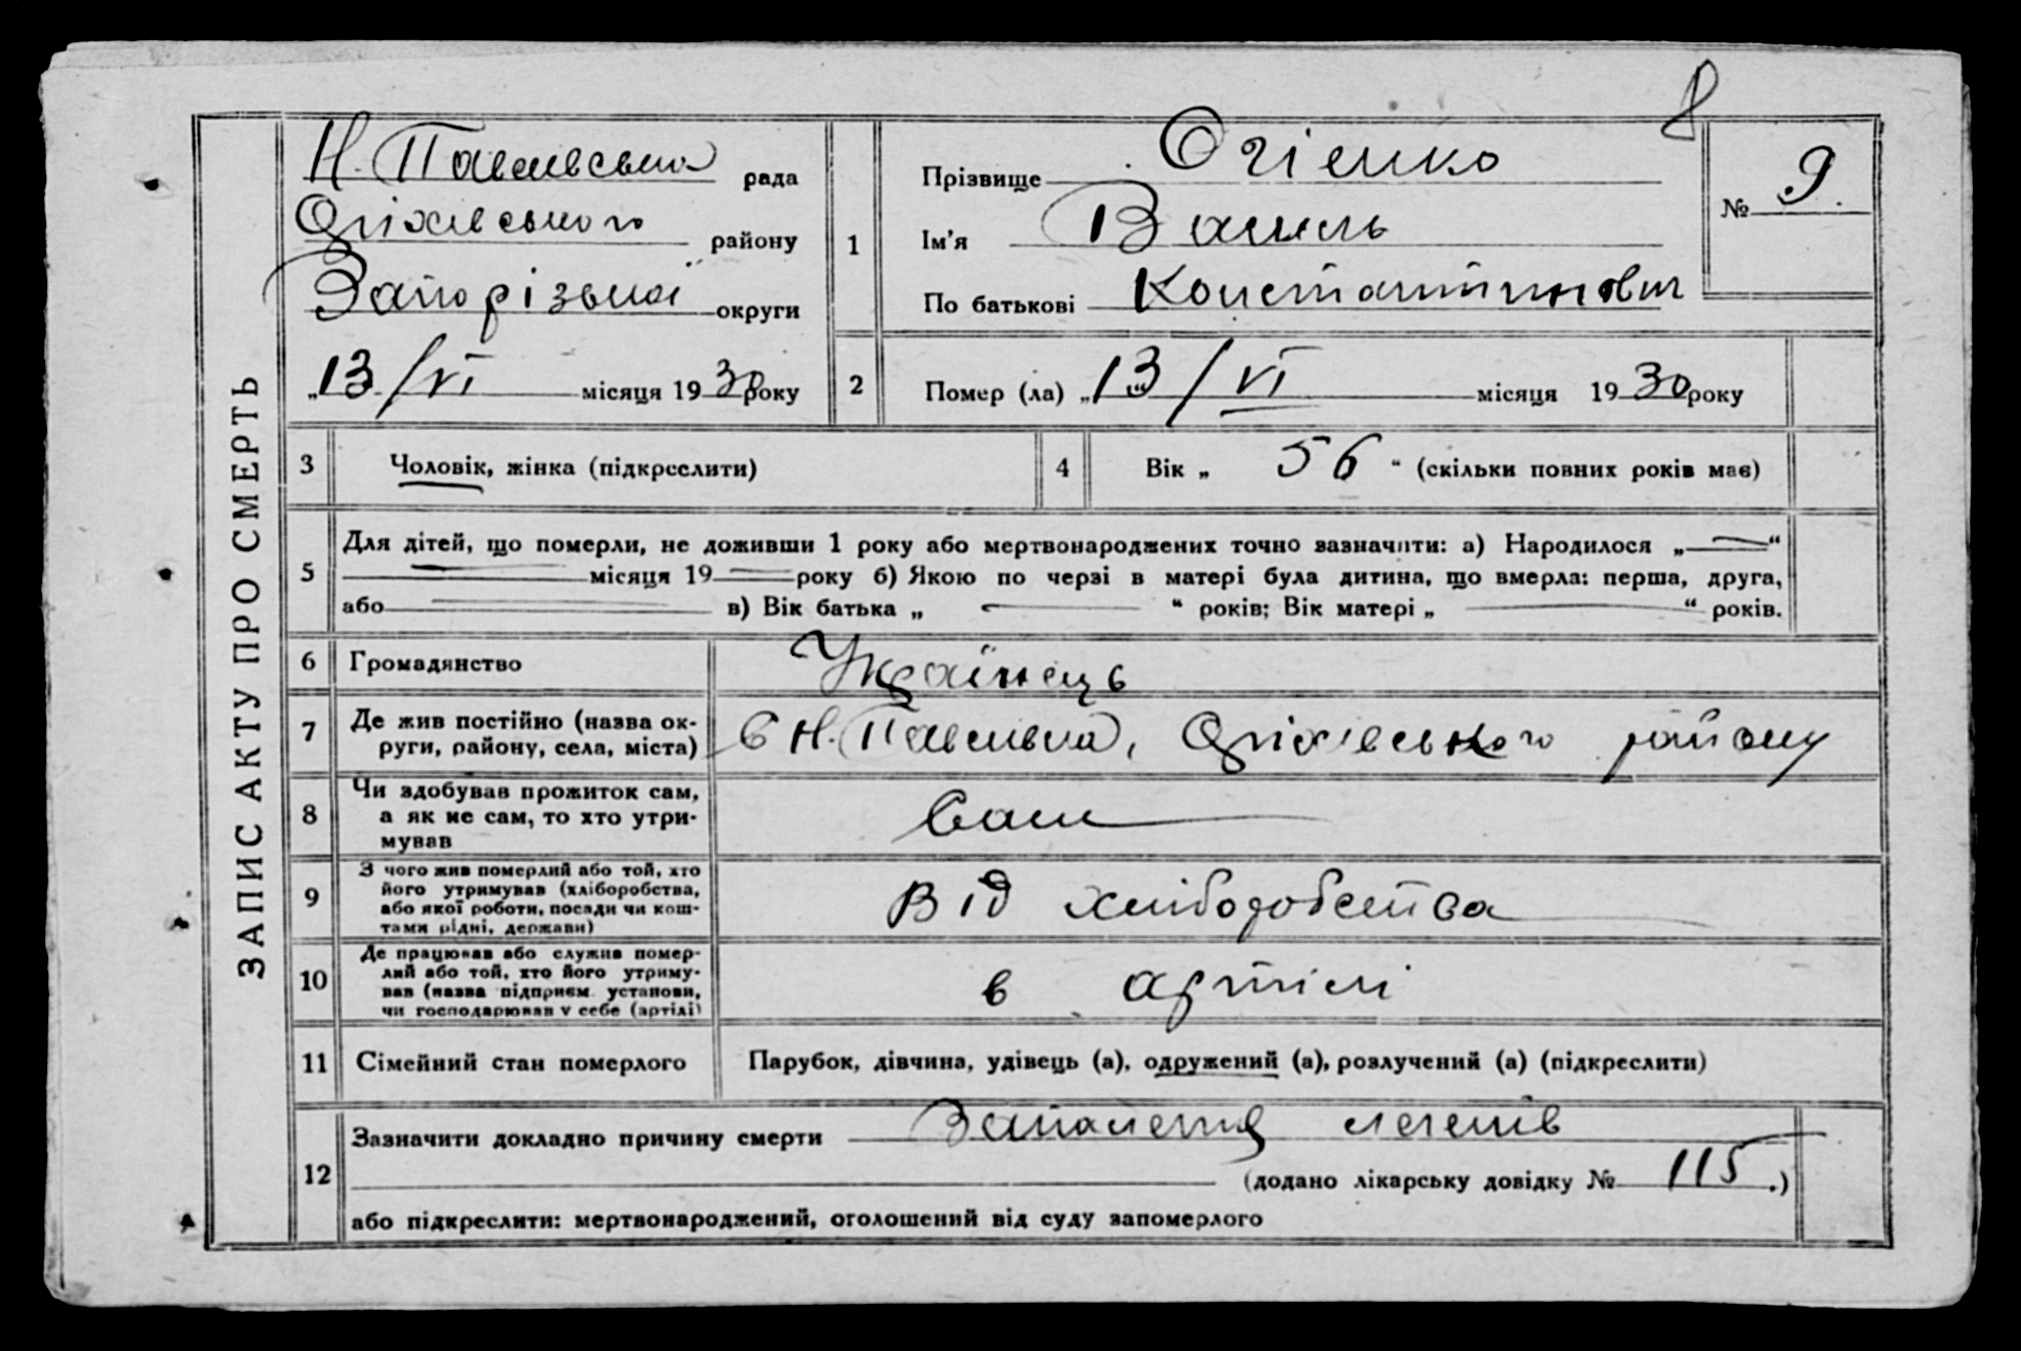 8
ЗАПИС АКТУ ПРО СМЕРТЬ
Н. Павлівська рада
Оріхівського району
Запорізької округи
„13/VI місяця 1930 року
1
Прізвище Огієнко
Ім'я Василь
По батькові Константинович
№ 9.
2
Помер (ла) „13/VI місяця 1930 року
3
Чоловік, жінка (підкреслити)
4
Вік „ 56 “ (скільки повних років має)
5
Для дітей, що померли, не доживши 1 року або мертвонароджених точно зазначити: а) Народилося „—“
— місяця 19— року б) Якою по черзі в матері була дитина, що вмерла: перша, друга,
або — в) Вік батька „ — “ років; Вік матері „ — “ років.
6
Громадянство
Українець
7
Де жив постійно (назва ок-
руги, району, села, міста)
С Н. Павлівка, Оріхівського району
8
Чи здобував прожиток сам,
а як не сам, то хто утри-
мував
Сам
9
З чого жив померлий або той, хто
його утримував (хліборобства,
або якої роботи, посади чи кош-
тами рідні, держави)
Від хліборобства
10
Де працював або служив помер-
лий або той, хто його утриму-
вав (назва підприєм. установи,
чи господарював у себе (артілі)
в артілі
11
Сімейний стан померлого
Парубок, дівчина, удівець (а), одружений (а), розлучений (а) (підкреслити)
12
Зазначити докладно причину смерти Запалення легенів
(додано лікарську довідку № 115.)
або підкреслити: мертвонароджений, оголошений від суду запомерлого